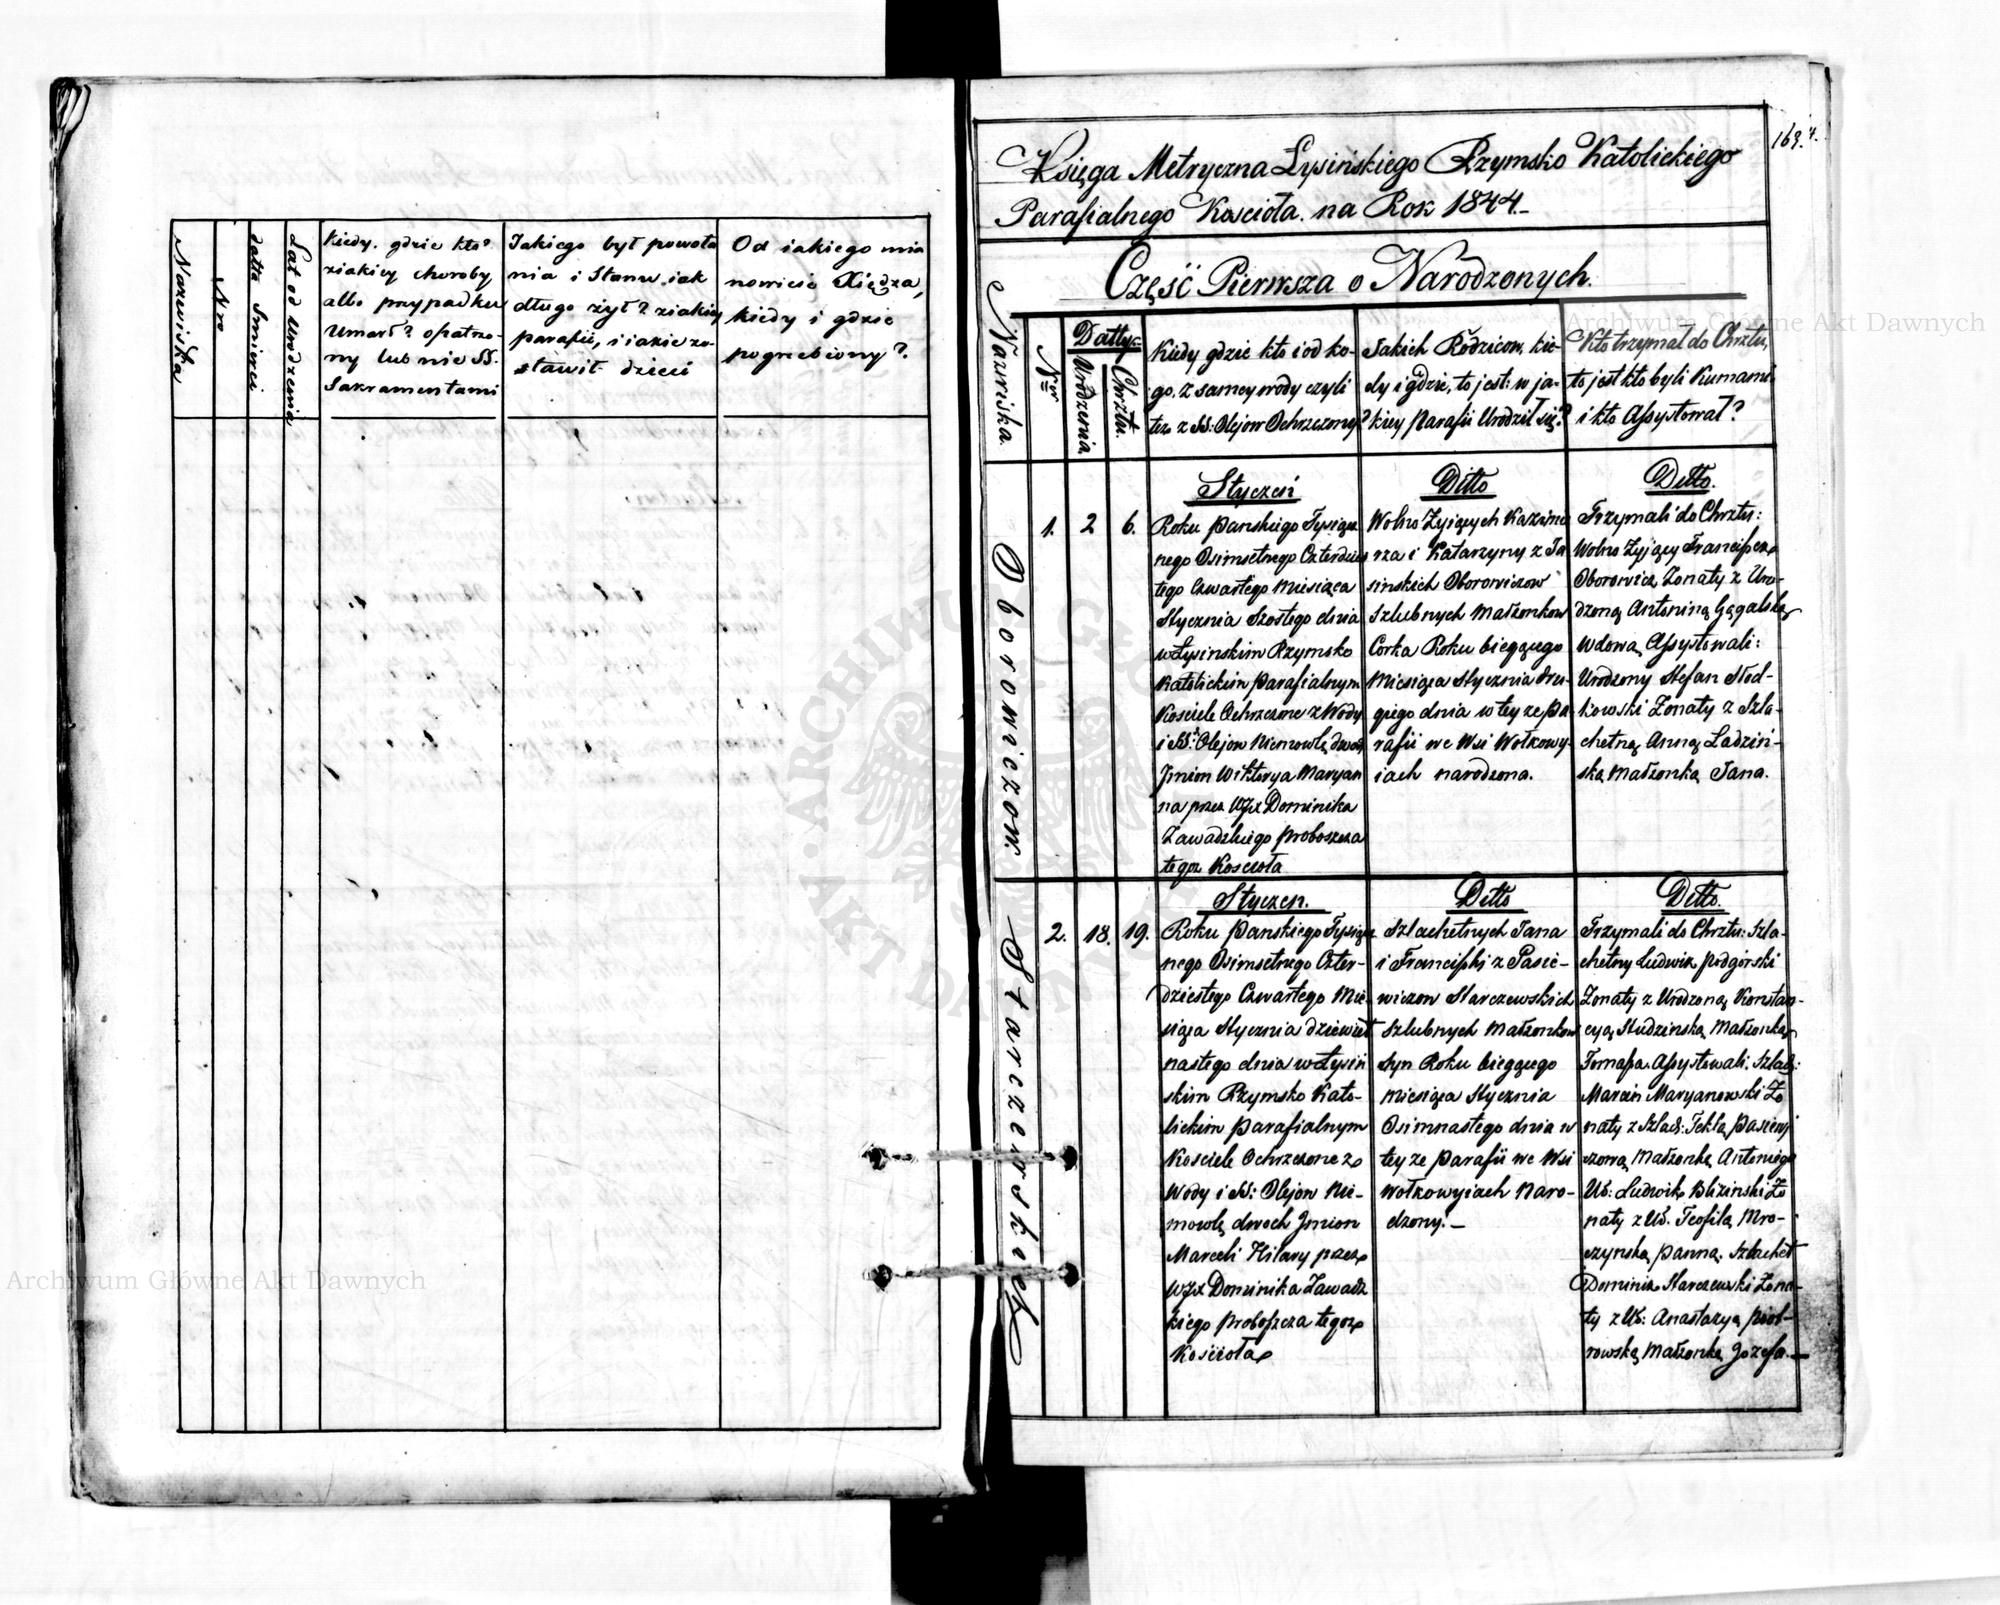 Nazwiska
Nro
datta Smierci
Lat od Urodzenia
Kiedy, gdzie kto?
ziakiey choroby
albo przypadku
Umarł? opatrzo-
ny lub nie SS.
Sakramentami
Jakiego był powoła
nia i Stanu, jak
długo żył? ziakiey
parafii, i iakie zo-
stawił dzieci
Od iakiego mia
nowicie Xiędza,
kiedy i gdzie
pogrzebiony?
163.
Księga Metryczna Łysińskiego Rzymsko Katolickiego
Parafialnego Koscioła na Rok 1844.-
Część Pierwsza o Narodzonych.
Nazwiska.
Nro
Datty
Urodzenia
Chrztu.
Kiedy gdzie kto i od ko-
go, z samey wody czyli
też z SS: Olejow Ochrzczony?
Jakich Rodzicow, kie-
dy i gdzie, to jest: w ja-
kiey Parafii Urodził się?
Kto trzymał do Chrztu,
to jest kto byli Kumami
i kto Assystował?
Oborowiczow.
1.
2
6.
Styczeń
Roku Pańskiego Tysiącz
nego Osimsetnego Czterdzies
tego Czwartego Miesiąca
Stycznia Szostego dnia
w Łysinskim Rzymsko
Katolickim Parafialnym
Kościele Ochrzczone z Wody
i SS: Olejow Niemowlę dwoch
Jmion Wiktorya Maryan
na przez WJX Dominika
Zawadzkiego Proboszcza
tegoz Koscioła
Ditto
Wolno Żyiących Kazimie
rza i Katarzyny z Ja
sinskich Oborowiczow
Szlubnych Małzonkow
Corka Roku biegącego
Miesiąca Stycznia dru-
giego dnia w tey ze Pa-
rafii we Wsi Wołkowy-
iach narodzona.
Ditto.
Trzymali do Chrztu:
Wolno Żyjący Franciszek
Oborowicz Żonaty z Uro-
dzoną Antoniną Gągalską
Wdową Assystowali:
Urodzony Stefan Słod-
kowski Żonaty z Szla-
chetną Anną Ladziń-
ską Małżonką Jana.
Starczewskich
2.
18.
19.
Styczen.
Roku Panskiego Tysiącz
nego Osimsetnego Czter-
dziestego Czwartego Mie-
siąca Stycznia dziewięt
nastego dnia w Łysiń
skim Rzymsko Kato-
lickim Parafialnym
Kosciele Ochrzczone z
Wody i SS: Olejow Nie-
mowlę dwoch Jmion
Marceli Hilary przez
WJX Dominika Zawadz
kiego Proboszcza tegoz
Koscioła
Ditto
Szlachetnych Jana
i Franciszki z Pasie-
wiczow Starczewskich
Szlubnych Małzonkow
Syn Roku biegącego
Miesiąca Stycznia
Osimnastego dnia w
tey ze Parafii we Wsi
Wołkowyiach Naro-
dzony.-
Ditto.
Trzymali do Chrztu: Szla-
chetny Ludwik Podgórski
Żonaty z Urodzoną Konstan-
cyą Studzinską Małzonką
Tomasza. Assystowali: Szlach:
Marcin Maryanowski Żo
naty z Szlach: Teklą Pasiewi
czową Małzonką Antoniego
Ur: Ludwik Blizinski Żo
naty z Ur. Teofilą Mro-
czynską Panną. Szlachet
Dominik Starczewski Żona-
ty z Ur: Anastazyą Piot-
rowską Małzonką Jozefa.-
Archiwum Główne Akt Dawnych
Archiwum Główne Akt Dawnych